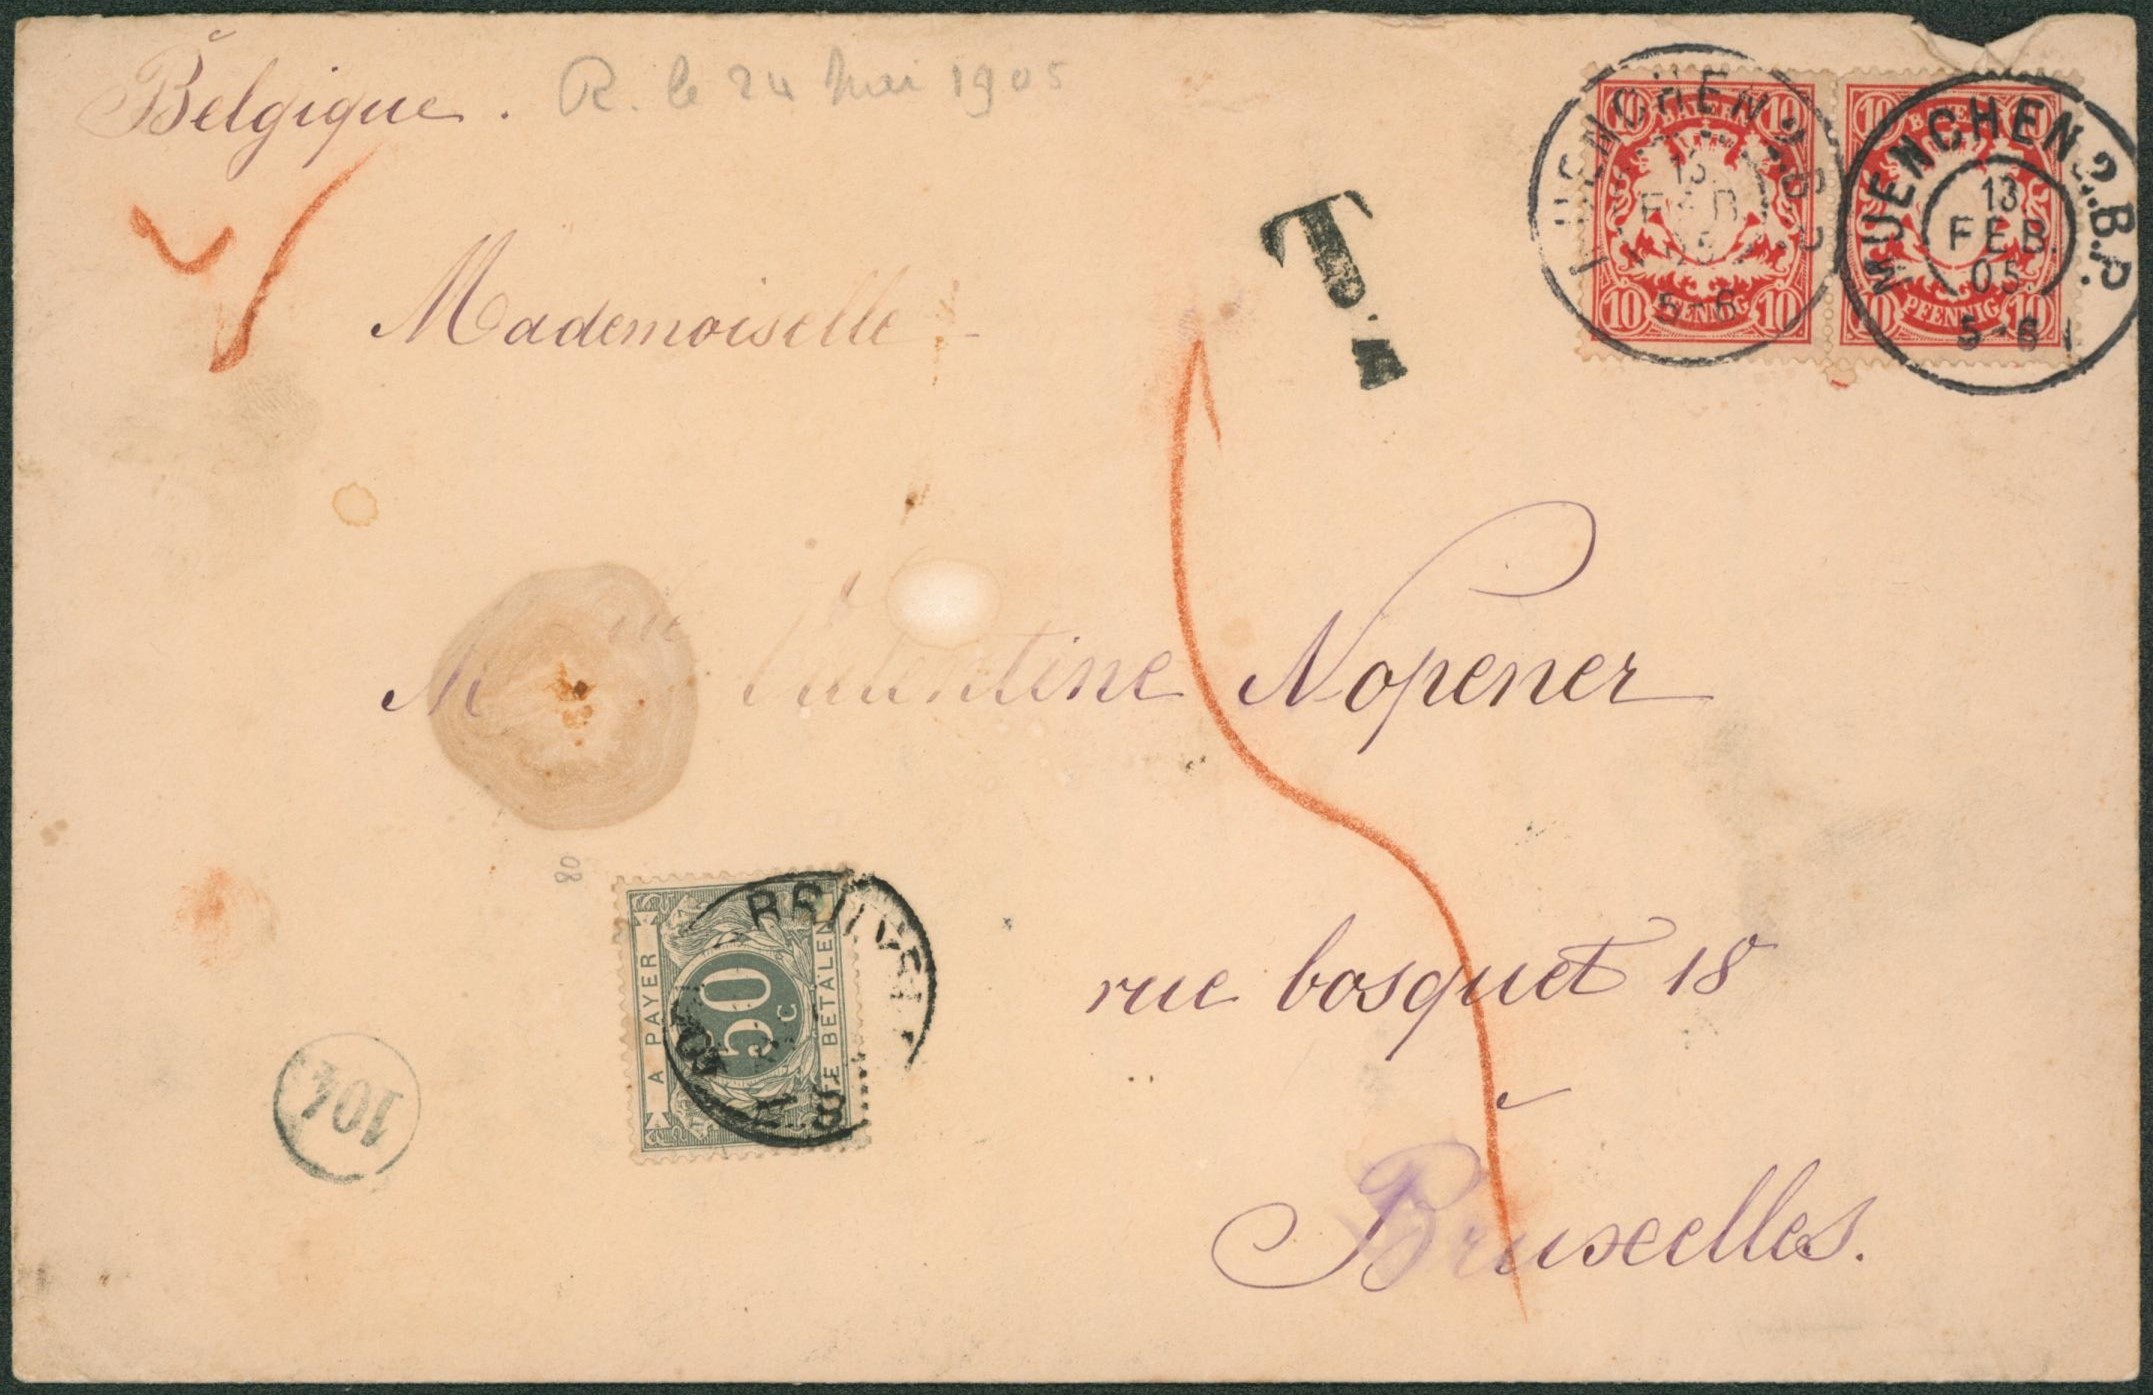 Belgique. R. le 24 Mai 1905
MUENCHEN 2.B.P.
13.
FEB.
05
5-6
10 10
10 PFENNIG 10
MUENCHEN 2.B.P.
13.
FEB.
05.
5-6
10 10
10 PFENNIG 10
T.
Mademoiselle
M Valentine Nopener
08
A PAYER
50 c
TE BETALEN
rue bosquet 18
à
104
Bruxelles.